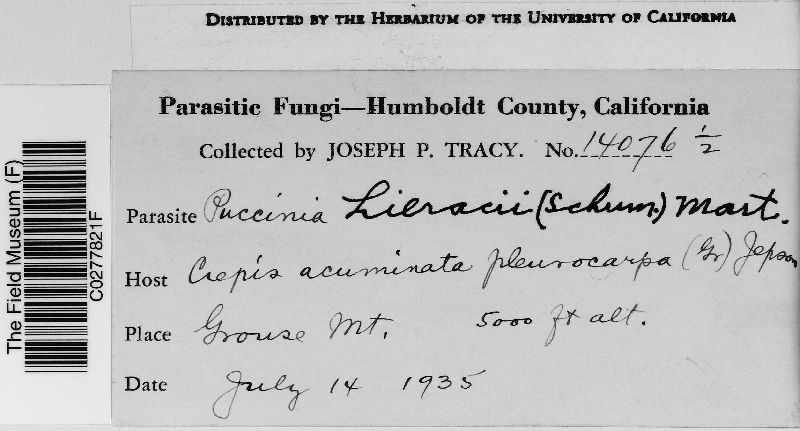 DISTRIBUTED BY THE HERBARIUM OF THE UNIVERSITY OF CALIFORNIA
Parasitic Fungi—Humboldt County, California
Collected by JOSEPH P. TRACY. No. 14076 ½
Parasite Puccinia Hieracii (Schum.) Mart.
Host Crepis acuminata pleurocarpa (Gr) Jepson
Place Grouse Mt. 5000 ft alt.
Date July 14 1935
The Field Museum (F)
C0277821F